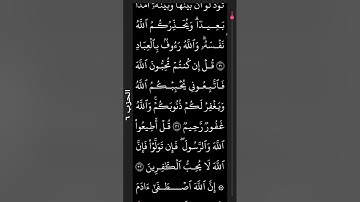 تَوَدُّ لَوْ أَنَّ بَيْنَهَا وَبَيْنَهُۥٓ أَمَدًۢا
بَعِيدًاۗ وَيُحَذِّرُكُمُ ٱللَّهُ
نَفْسَهُۥۗ وَٱللَّهُ رَءُوفُۢ بِٱلْعِبَادِ
٣٠ قُلْ إِن كُنتُمْ تُحِبُّونَ ٱللَّهَ
فَٱتَّبِعُونِي يُحْبِبْكُمُ ٱللَّهُ
وَيَغْفِرْ لَكُمْ ذُنُوبَكُمْۗ وَٱللَّهُ
غَفُورٌ رَّحِيمٌ ٣١ قُلْ أَطِيعُوا۟
ٱللَّهَ وَٱلرَّسُولَۖ فَإِن تَوَلَّوْا۟ فَإِنَّ
ٱللَّهَ لَا يُحِبُّ ٱلْكَٰفِرِينَ ٣٢
۞ إِنَّ ٱللَّهَ ٱصْطَفَىٰٓ ءَادَمَ
الحزب ٦